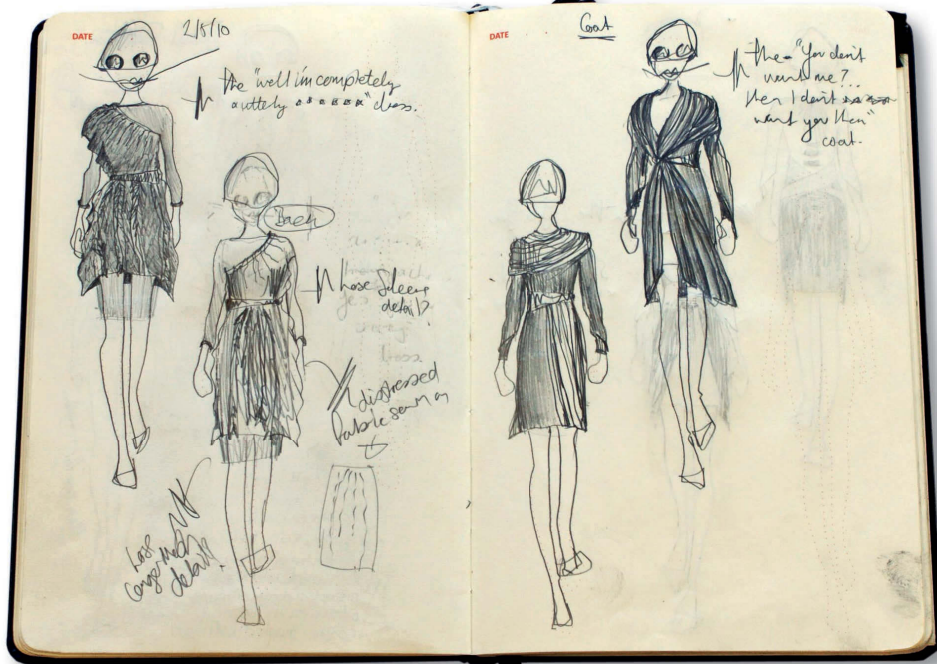 DATE
2/5/10
the "well im completely
& utterly ****** " dress.
Back
hose Sleeve
detail?
distressed
hose
large mesh
detail?
DATE
Coat
the "You don't
want me?..
then I don't
want you then"
coat.